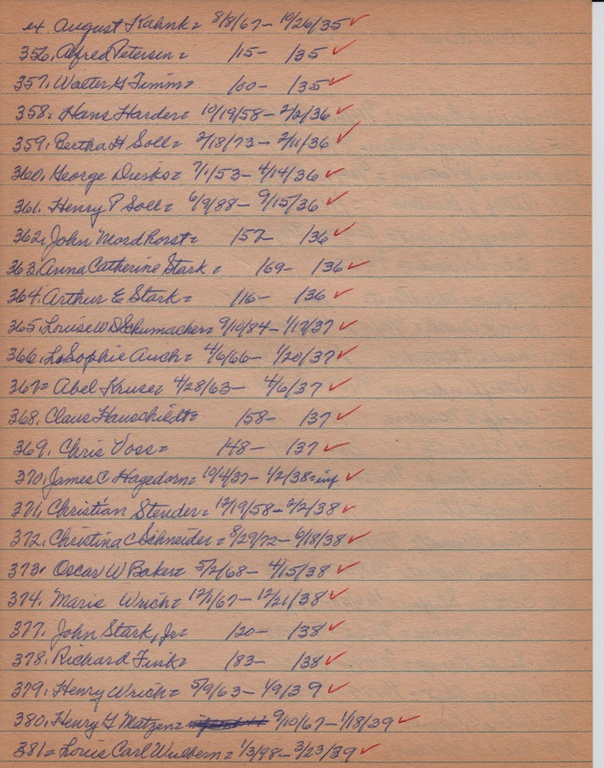 ex August Kahnk= 8/8/67- 10/26/35 ✓
356, Alfred Petersen= /15- /35 ✓
357, Walter G Timm= /00- /35 ✓
358, Hans Harder= 10/19/58- 2/2/36 ✓
359, Bertha H Soll= 2/18/73- 2/11/36 ✓
360, George Dierks= 7/1/53- 4/14/36 ✓
361, Henry P Soll= 6/9/88- 9/15/36 ✓
362, John Mordhorst= /52- /36 ✓
363, Anna Catherine Stark= /69- /36 ✓
364, Arthur E Stark= /16- /36 ✓
365, Louise W D Schumacher= 9/10/84- 1/17/37 ✓
366, Sophie Auch= 4/6/66- 1/20/37 ✓
367= Abel Kruse= 4/28/63- 4/6/37 ✓
368, Claus Hauschildt= /58- /37 ✓
369, Chris Voss= /48- /37 ✓
370, James C Hagedorn= 10/4/37- 1/2/38=inf ✓
371, Christian Steuder= 12/19/58- 2/2/38 ✓
372, Christina C Schneider= 8/29/72- 6/18/38 ✓
373, Oscar W Baker= 5/2/68- 4/15/38 ✓
374, Marie Wrich= 12/1/67- 12/21/38 ✓
377, John Stark, Jr= /20- /38 ✓
378, Richard Fink= /83- /38 ✓
379, Henry Wrich= 5/9/63- 1/9/39 ✓
380, Henry G Matzen= 9/10/67- 1/18/39 ✓
381= Louis Carl Wulbern= 1/3/98- 3/23/39 ✓